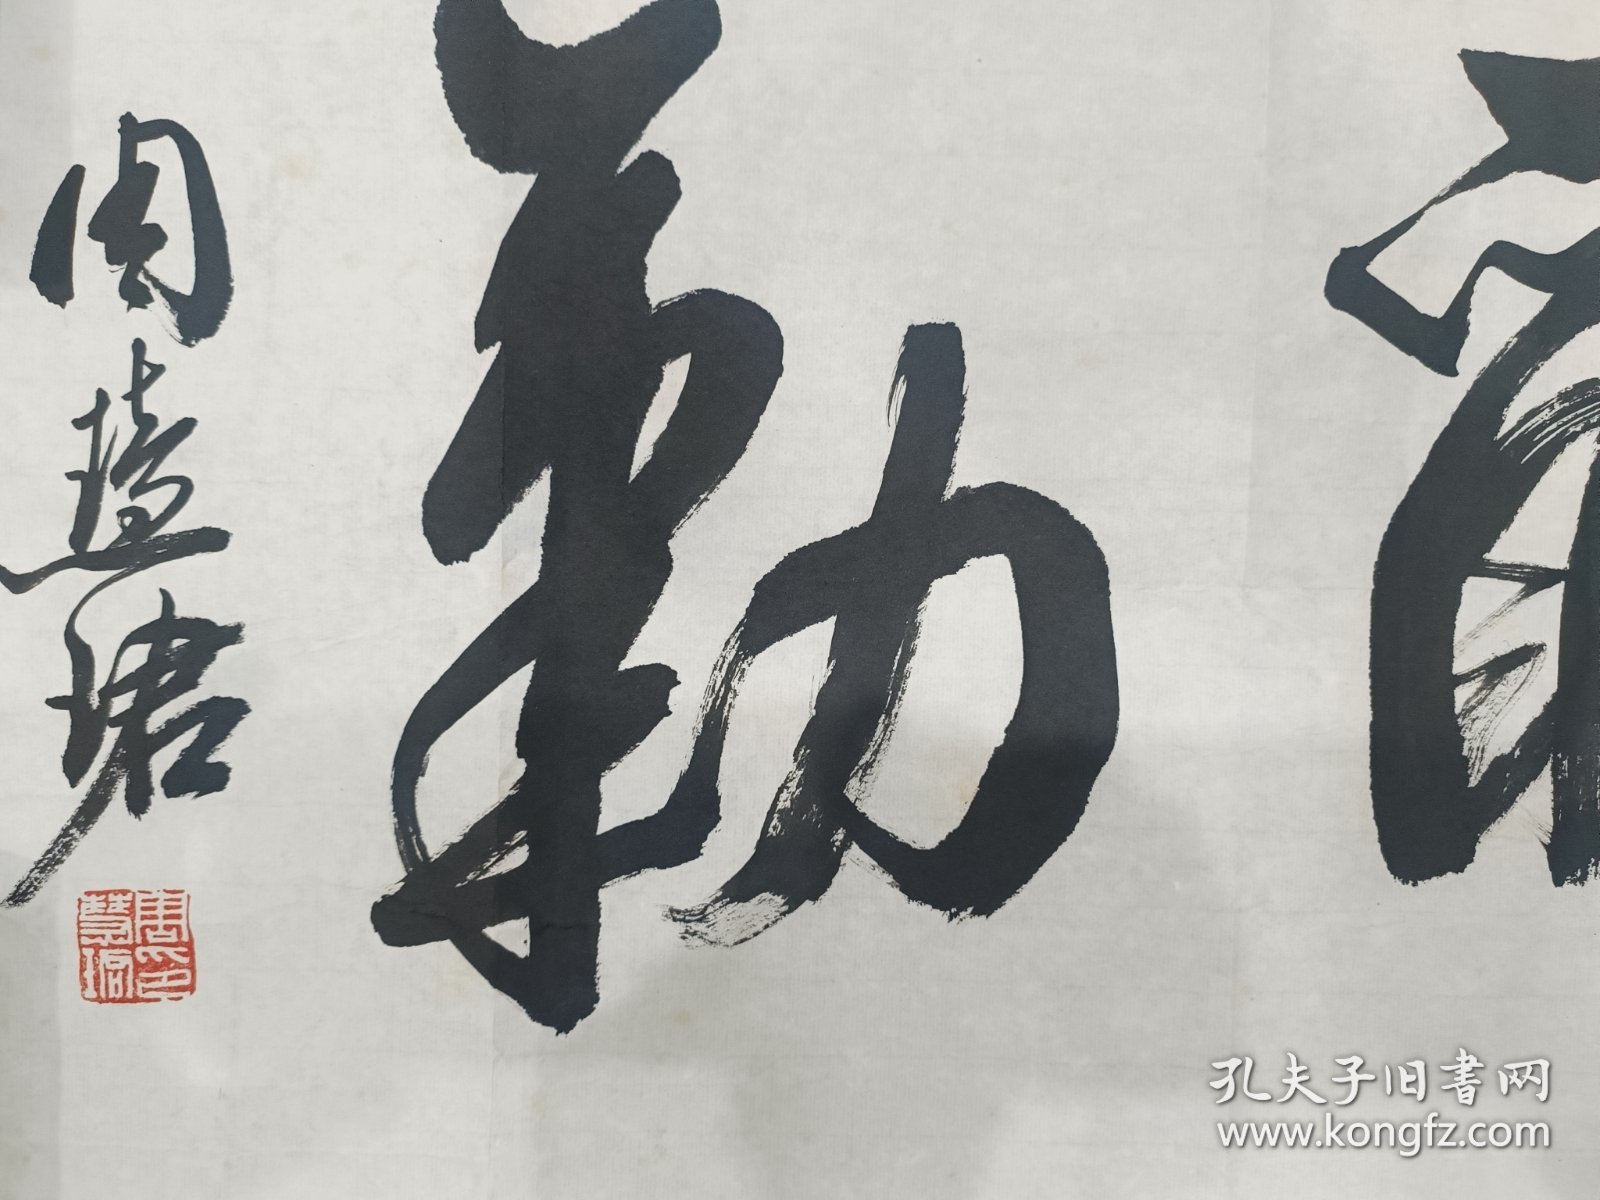 勤
周慧珺
周印慧珺
孔夫子旧书网
www.kongfz.com